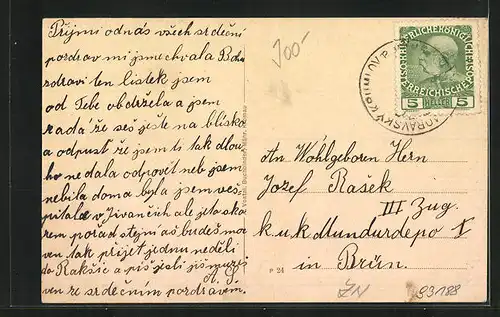 Přijmi od nás všech srdeční
pozdrav mi jsme chvala Bohu
zdravi ten listek jsem
od Tebe obdržela a jsem
rada že seš ješte na blisko
a odpusť že jsem ti tak dlou
ho nedala odpovět neb jsem
nebila doma byla jsem ve š
pitale v Ivančich ale je to sko
rem pořad stejni aš budeš mo
ven tak přijet jednu neděli
do Rakšic a piš jesli
ven ze srdečnim pozdravem.
300-
KAISERLICHE KÖNIGLICHE
ÖSTERREICHISCHE POST
5 HELLER 5
MORAVSKÝ KRUMLOV
An Wohlgeboren Herrn
Jozef Rašek
III Zug.
k.u.k Mundurdepo I
in Brün.
P 24
ŽN
93188